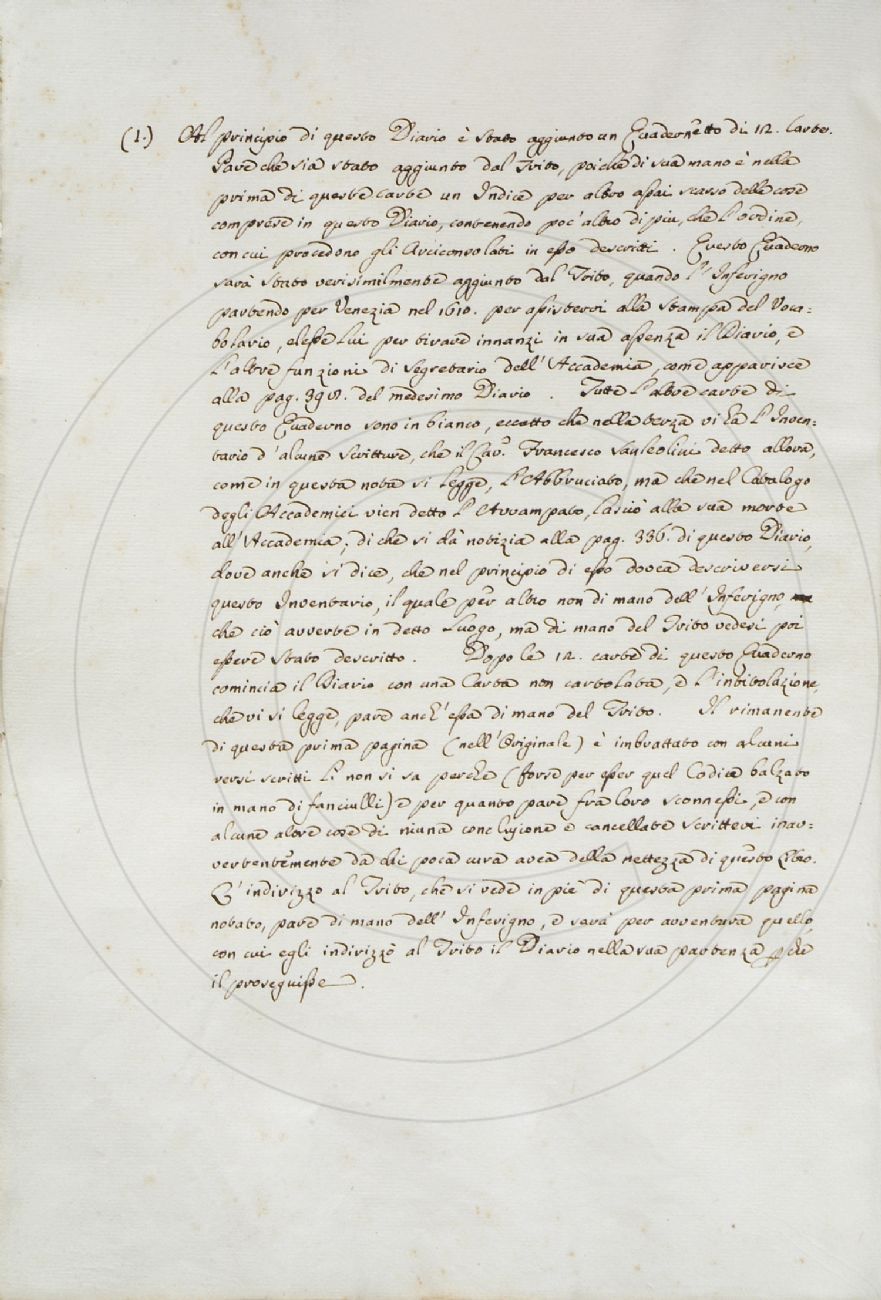 (1.) Al principio di questo Diario è stato aggiunto un Quadernetto di 12. Carte.
Pare che sia stato aggiunto dal Trito, poichè di sua mano è nella
prima di queste carte un Indice per altro assai scarso delle cose
comprese in questo Diario, contenendo poc'altro di piu, che l'ordine,
con cui procedono gli Arciconsolati in esso descritti. Questo Quaderno
sarà stato verisimilmente aggiunto dal Trito, quando l'Inferigno
partendo per Venezia nel 1610. per assistervi alla stampa del Voca=
bolario, elesse lui per tirare innanzi in sua assenza il Diario, e
l'altre funzioni di Segretario dell'Accademia, come apparisce
alla pag. 398. del medesimo Diario. Tutte l'altre carte di
questo Quaderno sono in bianco, eccetto che nella terza vi ha l'Inven-
tario d'alcune scritture, che il Cav.r Francesco Sanleolini detto allora,
come in questa nota si legge, l'Abbruciato, ma che nel Catalogo
degli Accademici vien detto l'Avvampato, lasciò alla sua morte
all'Accademia; di che si dà notizia alla pag. 336. di questo Diario,
dove anche si dice, che nel principio di esso dovea descriversi
questo Inventario, il quale per altro non di mano dell'Inferigno,
che ciò avverte in detto luogo, ma di mano del Trito vedesi poi
essere stato descritto. Dopo le 12. carte di questo Quaderno
comincia il Diario con una Carta non cartolata, e l'intitolazione,
che vi si legge, pare anch'essa di mano del Trito. Il rimanente
di questa prima pagina (nell'Originale) è imbrattato con alcuni
versi scritti lì non si sa perchè (forse per esser quel Codice balzato
in mano di fanciulli) e per quanto pare fra loro sconnessi, e con
alcune altre cose di niuna conclusione e cancellate scrittevi inav=
vertentemente da chi poca cura avea della nettezza di questo Libro.
L'indirizzo al Trito, che si vede in piè di questa prima pagina
notato, pare di mano dell'Inferigno, e sarà per avventura quello,
con cui egli indirizzò al Trito il Diario nella sua partenza p chè
il proseguisse.